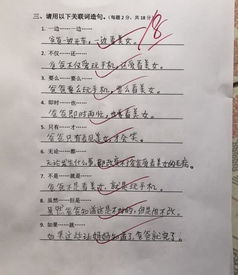 三、请用以下关联词造句。(每题2分,共18分)
18
1. 一边……一边……
爸爸一边开车,一边看美女。
2. 不仅……还……
爸爸不仅爱玩手机,还爱看美女。
3. 要么……要么……
爸爸要么玩手机,要么看美女。
4. 即时……也……
爸爸即时雨天,也要看美女。
5. 只有……才……
爸爸只有看见美女,才会笑。
6. 无论……都……
无论发生什么事,都改变不了爸爸爱看美女的毛病。
7. 不是……就是……
爸爸不是看美女,就是玩手机。
8. 虽然……但是……
虽然爸爸知道这是不好的,但是他不改。
9. 如果……就……
如果这些让妈妈知道了,爸爸就完了。